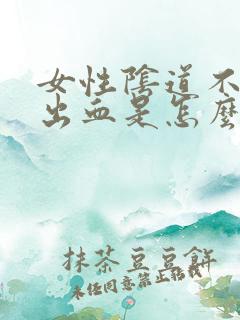 女性陰道不
出血是怎麼
抹茶豆豆餅
未經同意禁止轉載